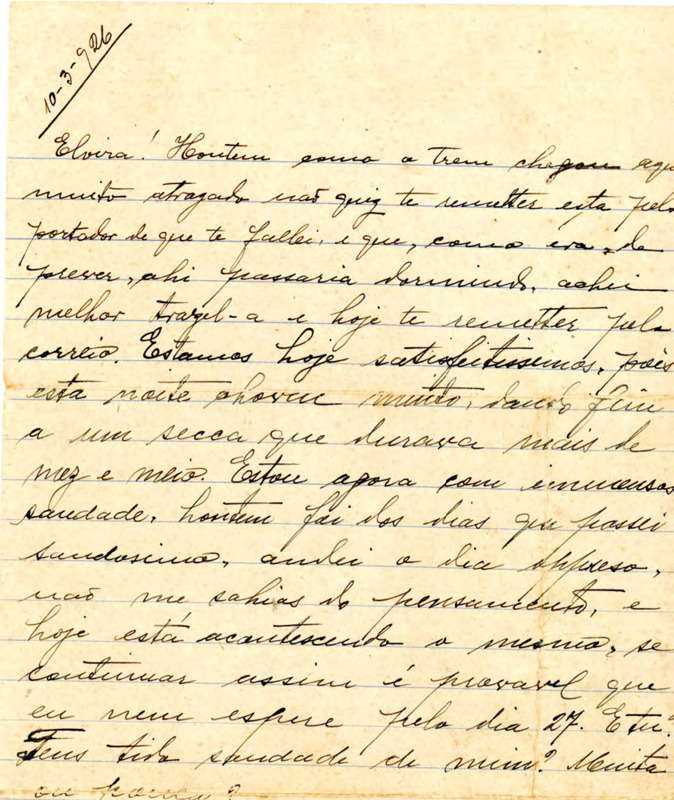 10-3-926
Elvira! Hontem como o trem chegou aqui
muito atrazado não quiz te remetter esta pelo
portador de que te fallei, e que, como era, de
prever, ahi passaria dormindo, achei
melhor trazel-a e hoje te remetter pelo
correio. Estamos hoje satisfeitissemos, pois
esta noite choveu muito, dando fim
a um secca que durava mais de
mez e meio. Estou agora com immensas
saudade, hontem foi dos dias que passei
saudosimo, andei o dia oppreso,
não me sahias do pensamento, e
hoje está acontescendo o mesmo, se
continuar assim é provavel que
eu nem espere pelo dia 27. E tu?
Tens tido saudade de mim? Muita
ou pouca?